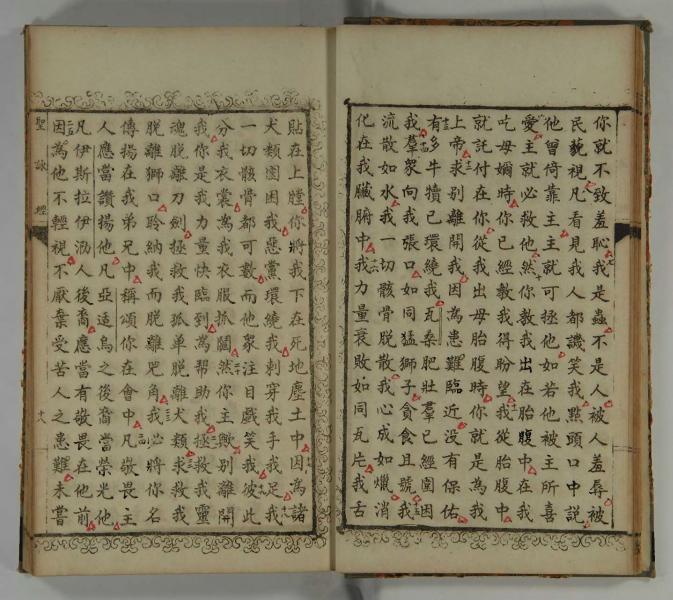 你就不致羞恥我是蟲不是人被人羞辱被
民藐視凡看見我人都譏笑我點頭口中説
他曾倚靠主主就可拯他如若他被主所喜
愛主就必救他然你教我出在胎腹中在我
吃母嬭時你已經教我得盼望我從胎腹中
就託付在你從我出母胎腹時你就是為我
上帝求别離開我因為患難臨近沒有保佑
有多牛犢已環繞我瓦桑肥壯羣已經圍困
我羣衆向我張口如同猛獅子貪食且號我
流散如水我一切骸骨脫散我心成如爉消
化在我臟腑中我力量衰敗如同瓦片我舌
貼在上膛你將我下在死地塵土中因為諸
犬類圍困我惡黨環繞我刺穿我手我足我
一切骸骨都可數而他衆注目戲笑我彼此
分我衣裳為我衣服抓鬮然你主歟别離開
我你是我力量快臨到為幫助我拯救我靈
魂脫離刀劍拯救我孤单脫離犬類求救我
脫離獅口聆納我而脫離兕角我必將你名
傳揚在我弟兄中稱頌你在會中凡敬畏主
人應當讃揚他凡亞适烏之後裔當榮光他
凡伊斯拉伊泐人後裔應當有敬畏在他前
因為他不輕視不厭棄受苦人之患難未嘗
聖詠經
十八